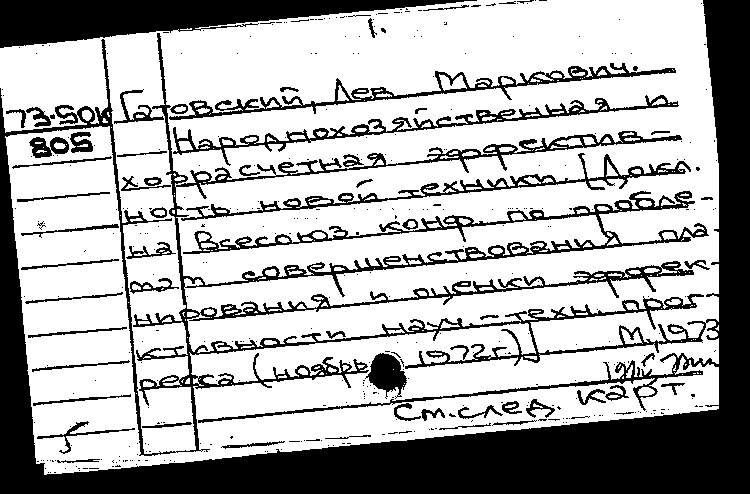 1.
73-50к Гатовский, Лев Маркович.
805 Народнохозяйственная и
хозрасчетная эффектив-
ность новой техники. [Докл.
на Всесоюз. конф. по пробле-
мам совершенствования пла-
нирования и оценки эффек-
ктивности науч.-техн. прог-
ресса (ноябрь 1972г.)]. М., 1973
См. след. карт.
5